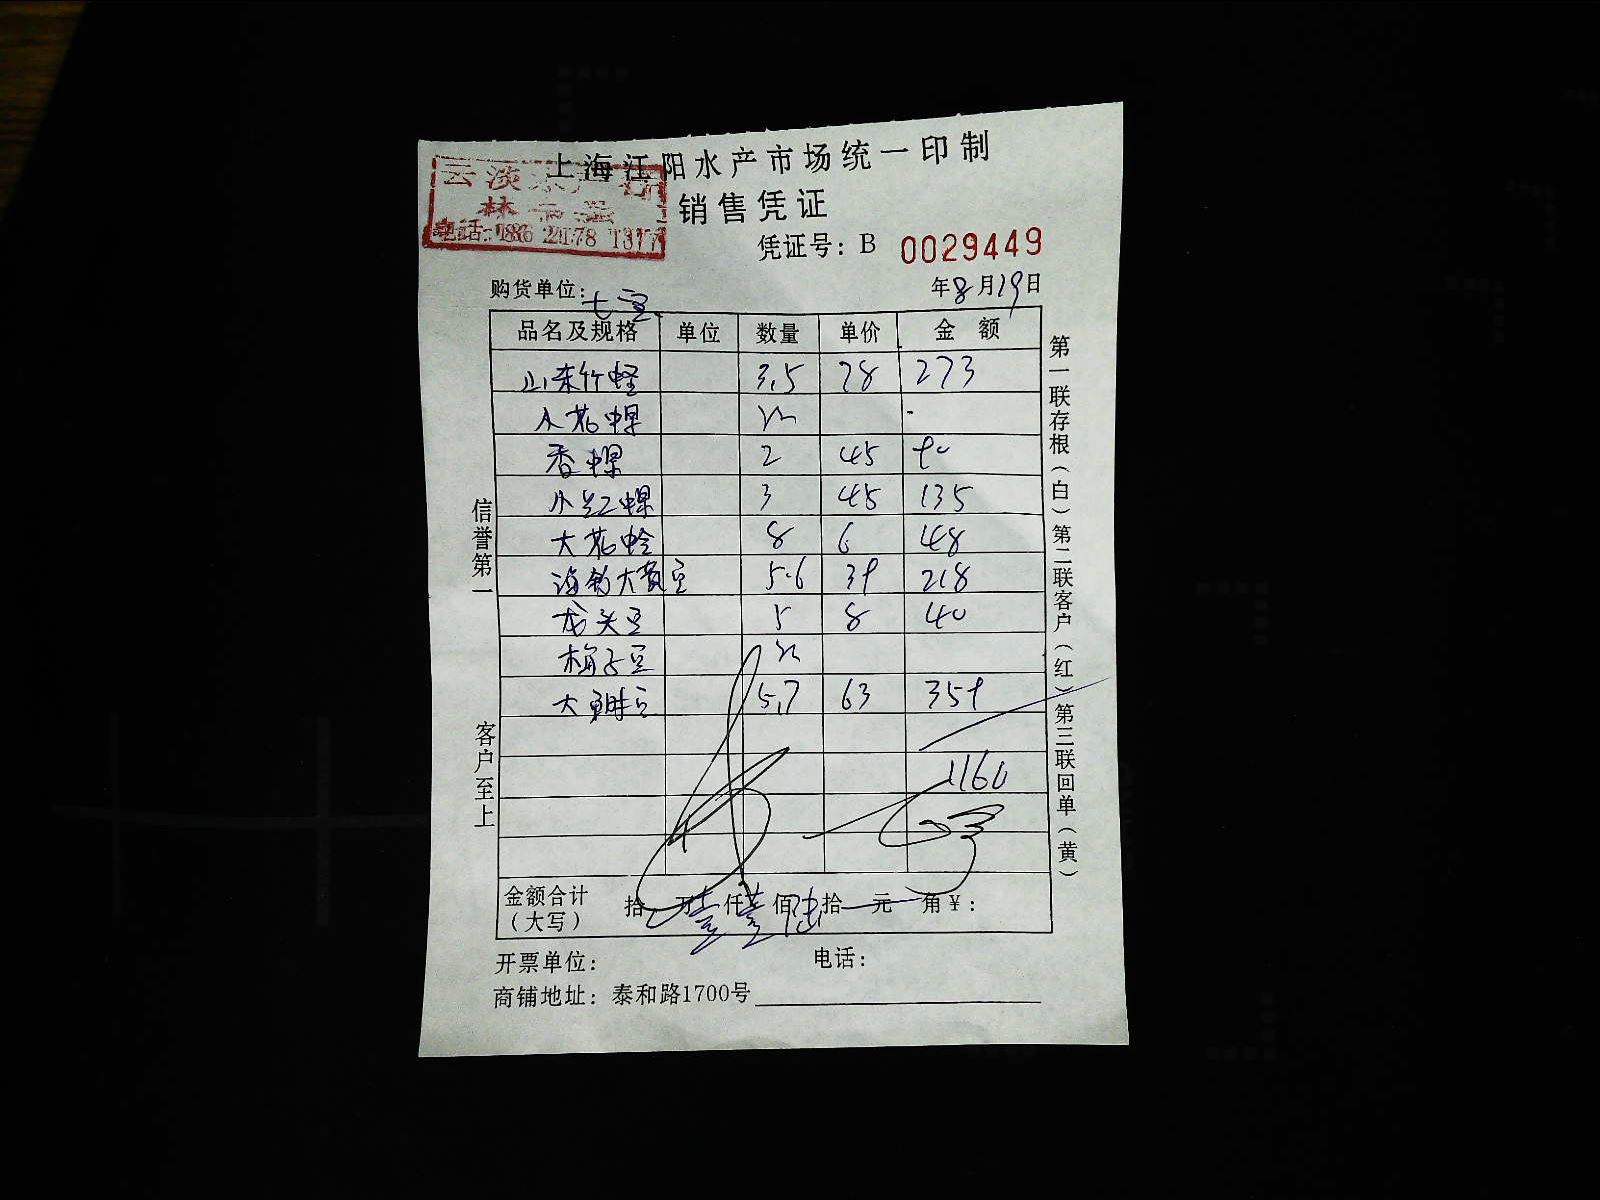 上海江阳水产市场统一印制
云淡水产行
电话:186 2178 1377
销售凭证
凭证号：B 0029449
购货单位：七宝
年8月19日
品名及规格 单位 数量 单价 金额
山东竹蛏 3.5 78 273
香螺 2 45 90
小红螺 3 45 135
大花蛤 8 6 48
5.6 39 218
龙头 5 8 40
梅子
大 5.7 63 359
1160
金额合计（大写） 拾 万壹仟壹佰陆拾 元 角￥：
开票单位： 电话：
商铺地址：泰和路1700号
信誉第一 客户至上
第一联存根（白）第二联客户（红）第三联回单（黄）